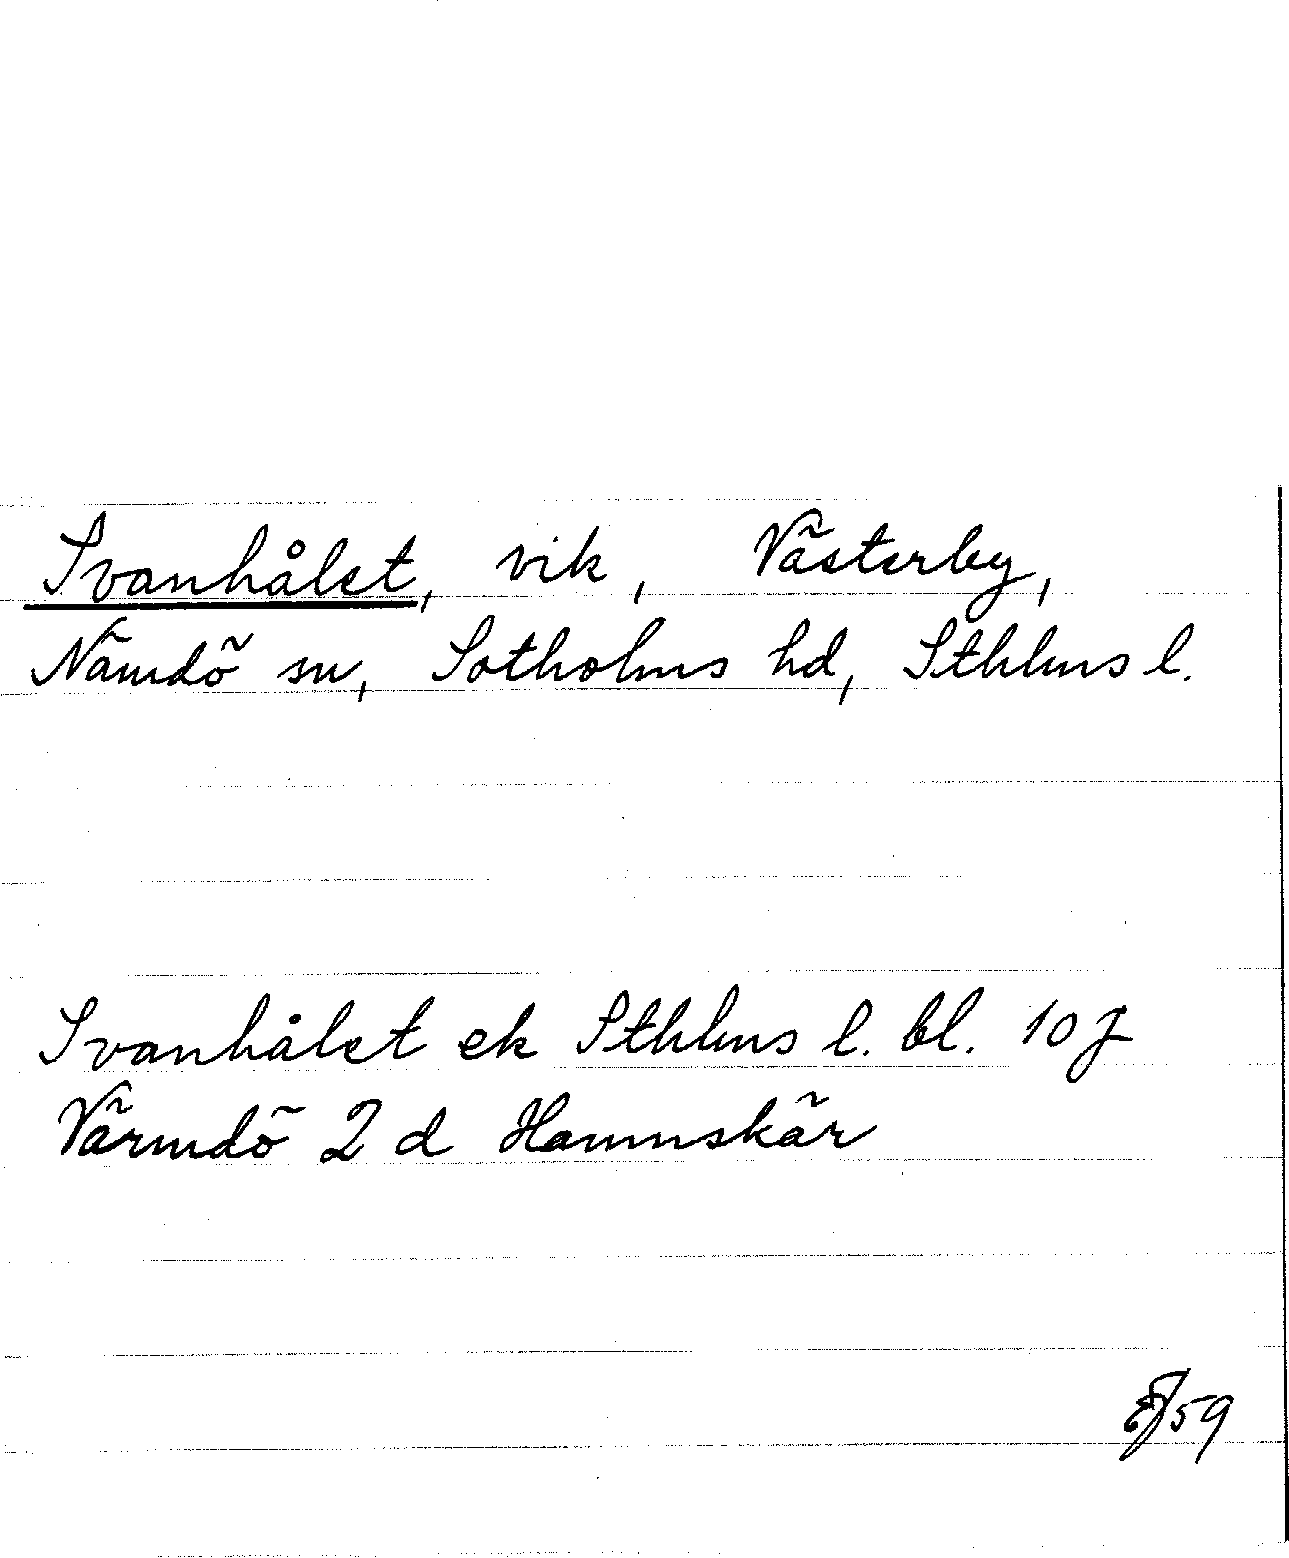 Svanhålet, vik, Västerby,
Nämdö sn, Sotholms hd, Sthlms l.
Svanhålet ek Sthlms l. bl. 10 J
Värmdö 2 d Hamnskär
EJ 59